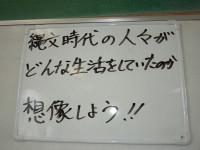 縄文時代の人々が
どんな生活をしていたのか
想像しよう!!